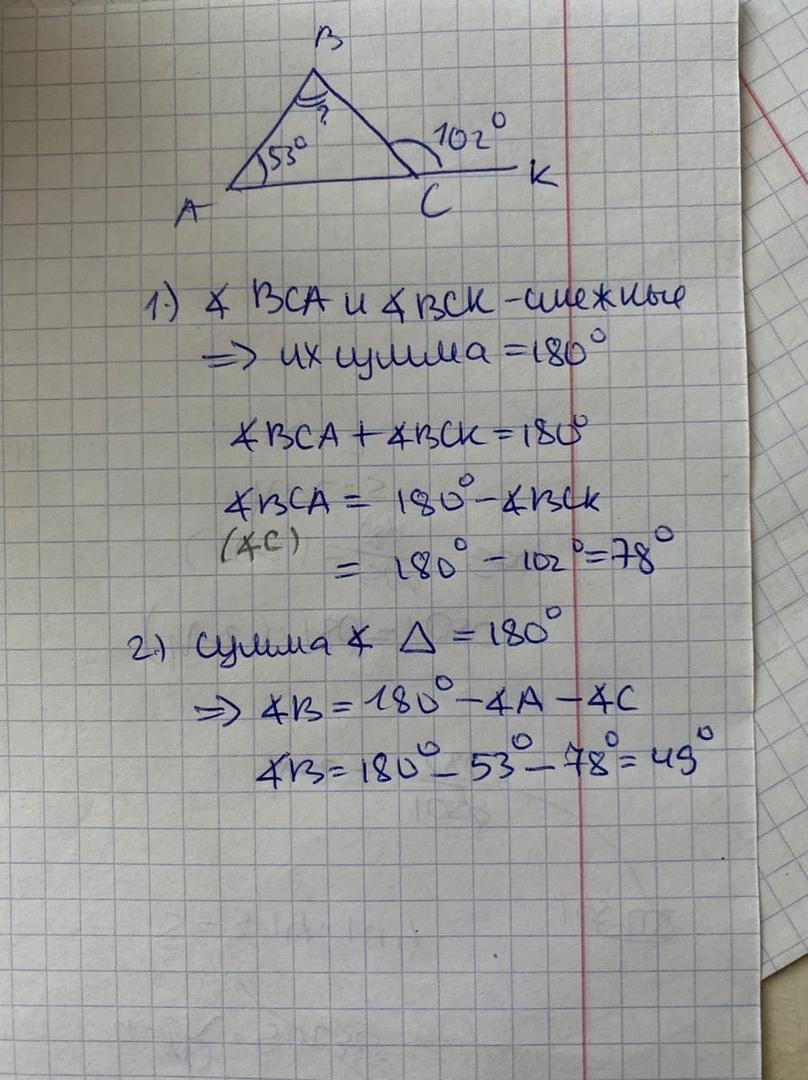 B
?
53°
102°
A
C
K
1.) ∡ BCA и ∡BCK - смежные
=> их сумма = 180°
∡BCA + ∡BCK = 180°
∡BCA = 180° - ∡BCK
(∡C)
= 180° - 102° = 78°
2.) сумма ∡ Δ = 180°
=> ∡B = 180° - ∡A - ∡C
∡B = 180° - 53° - 78° = 49°